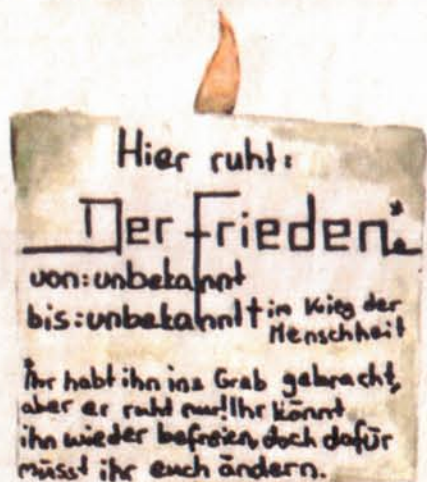 Hier ruht:
Der Frieden*
von: unbekannt
bis: unbekannt † im Krieg der
Menschheit
*Ihr habt ihn ins Grab gebracht,
aber er ruht nur! Ihr könnt
ihn wieder befreien, doch dafür
müsst ihr euch ändern.